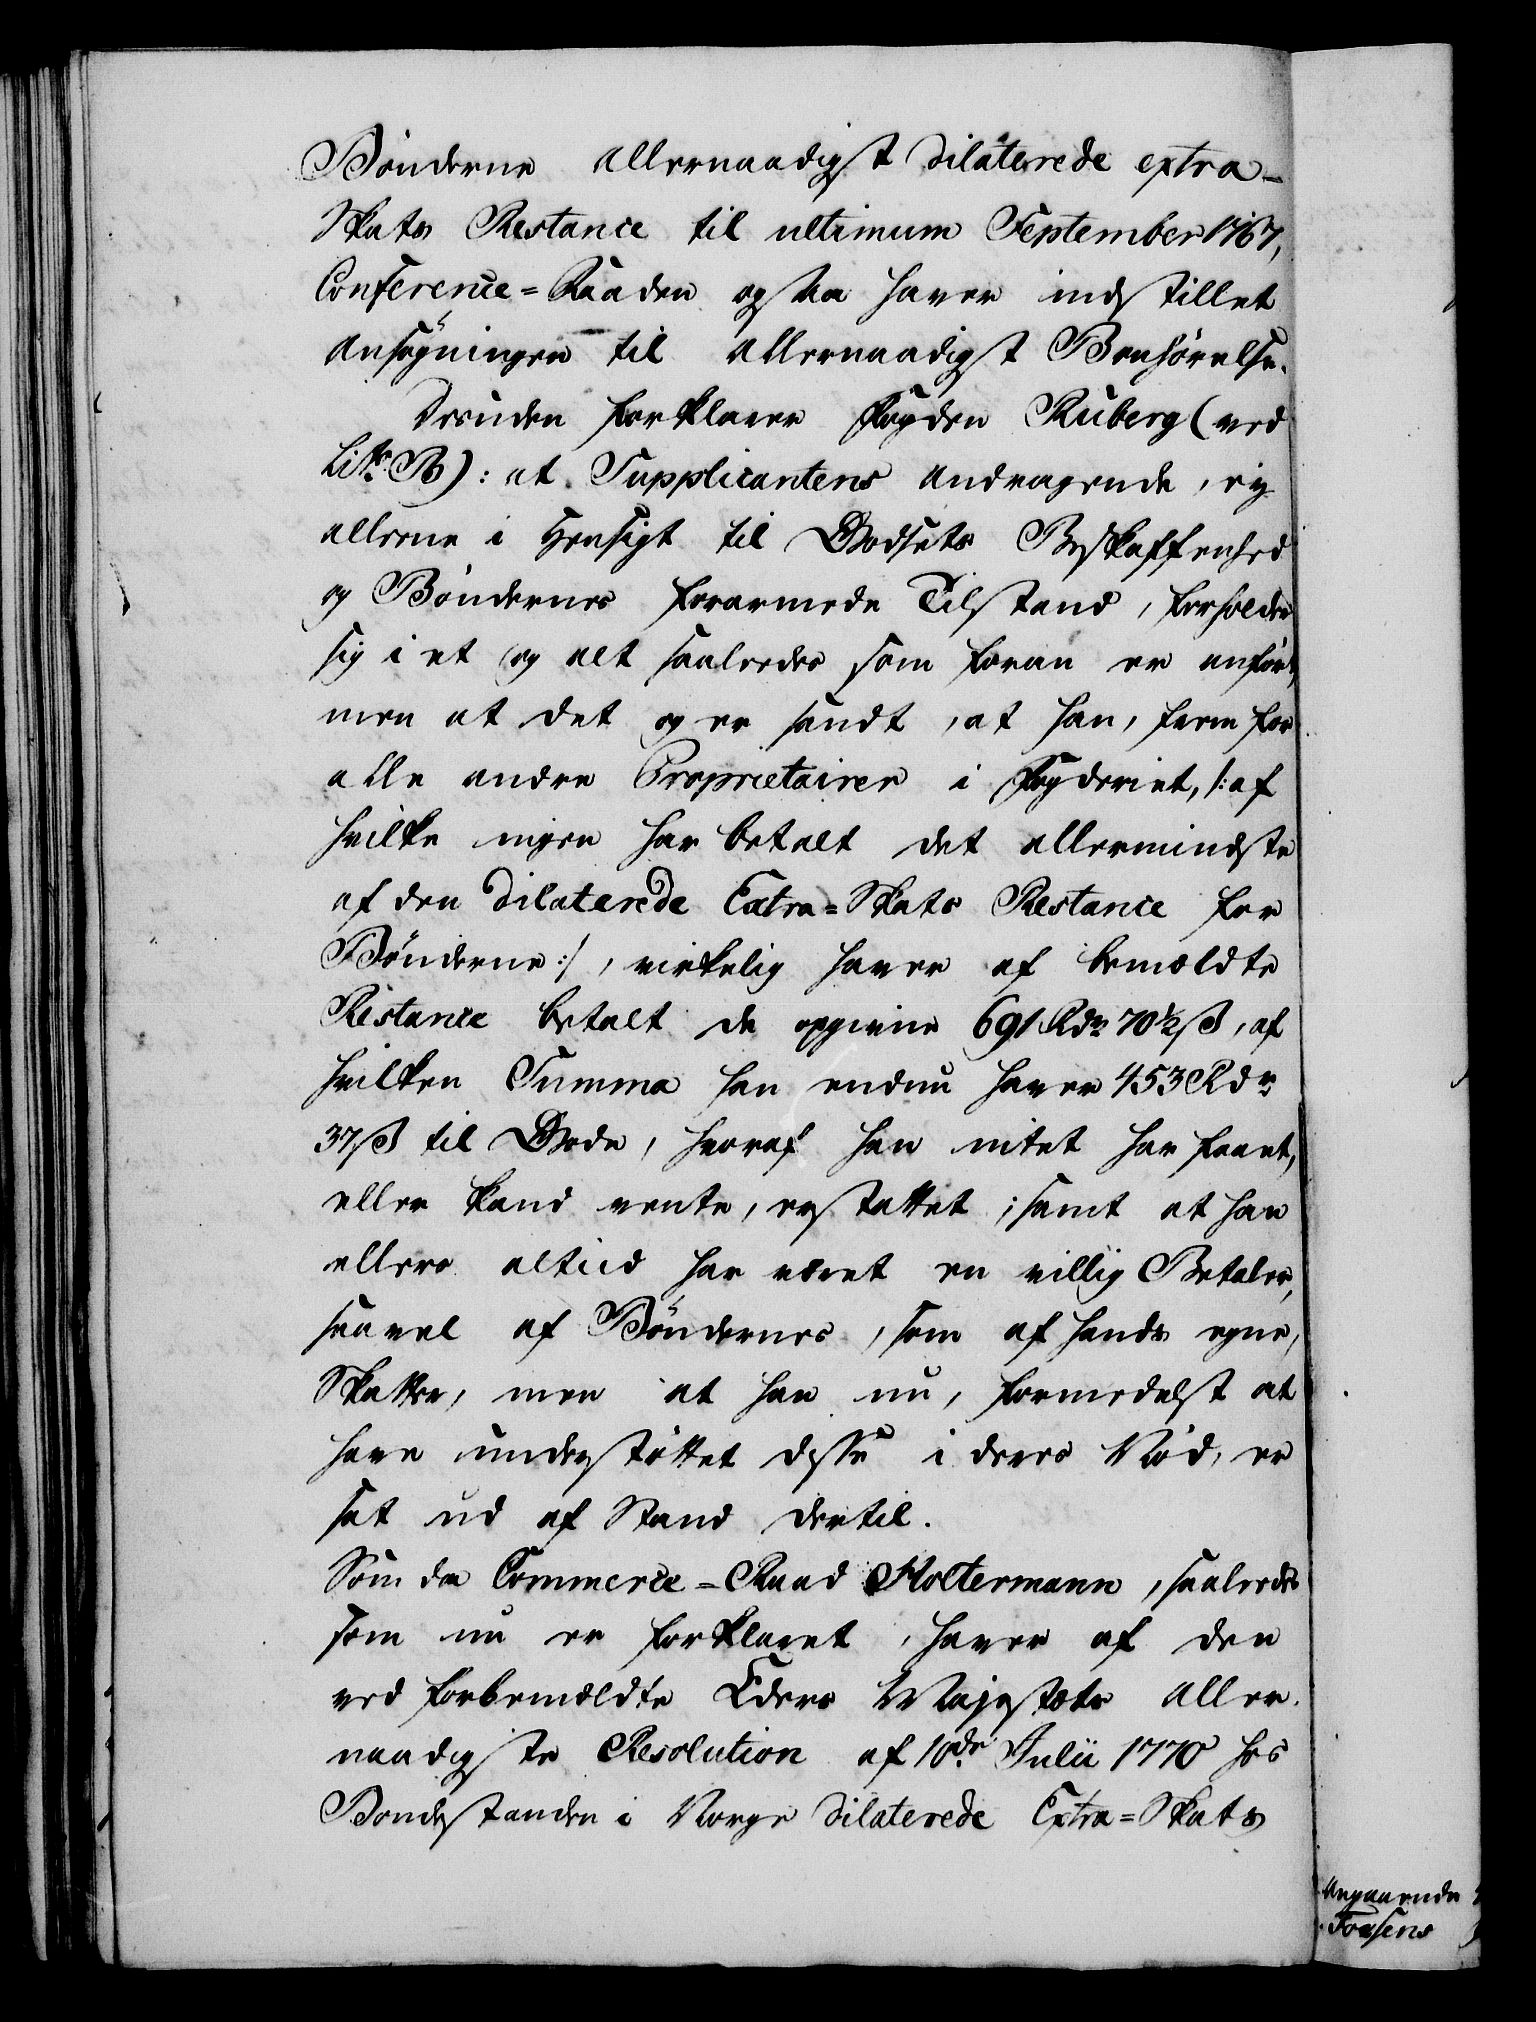 Bönderne allernaadigst dilaterede extra-
Skats Restance til ultimum September 1767,
Conference=Raaden ogsaa haver indstillet
Ansøgningen til allernaadigst Bønhørelse.
Desuden forklarer Fogden Ruberg (ved
Litr. B): at Supplicantens Andragende, ey
alleene i Hensigt til Godsets Beskaffenhed
og Böndernes forarmede Tilstand, forholder
sig i et og alt saaledes som foran er anført,
men at det og er sandt, at han, frem for
alle andre Proprietairer i Fogderiet, /: af
hvilke ingen har betalt det allermindste
af den dilaterede Extra=Skats Restance for
Bönderne :/, virkelig haver af bemeldte
Restance betalt de opgivne 691 Rdr 70½ ß, af
hvilken Summa han endnu haver 453 Rdr
37 ß til Gode, hvoraf han intet har faaet,
eller kand vente, erstattet; samt at han
ellers altiid har været en villig Betaler,
saavel af Böndernes, som af hands egne,
Skatter, men at han nu, formedelst at
have understøttet disse i deres Nöd, er
sat ud af Stand dertil.
Som da Commerce=Raad Holtermann, saaledes
som nu er forklaret, haver af den
ved forbemeldte Eders Majestæts aller-
naadigste Resolution af 10de Julii 1770 hos
Bondestanden i Norge dilaterede Extra=Skats
Angaaende
Fosens